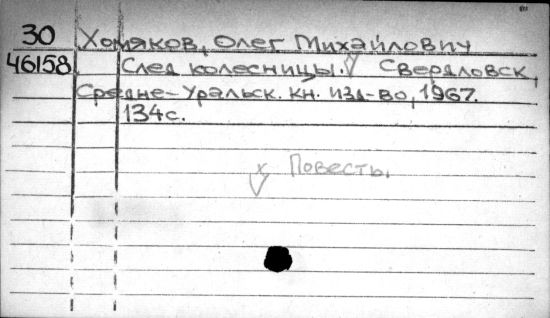 30 Хомяков, Олег Михайлович
46158 След колесницы. V Свердловск,
Средне-Уральск. кн. изд-во, 1967.
134с.
x Повесть.
V